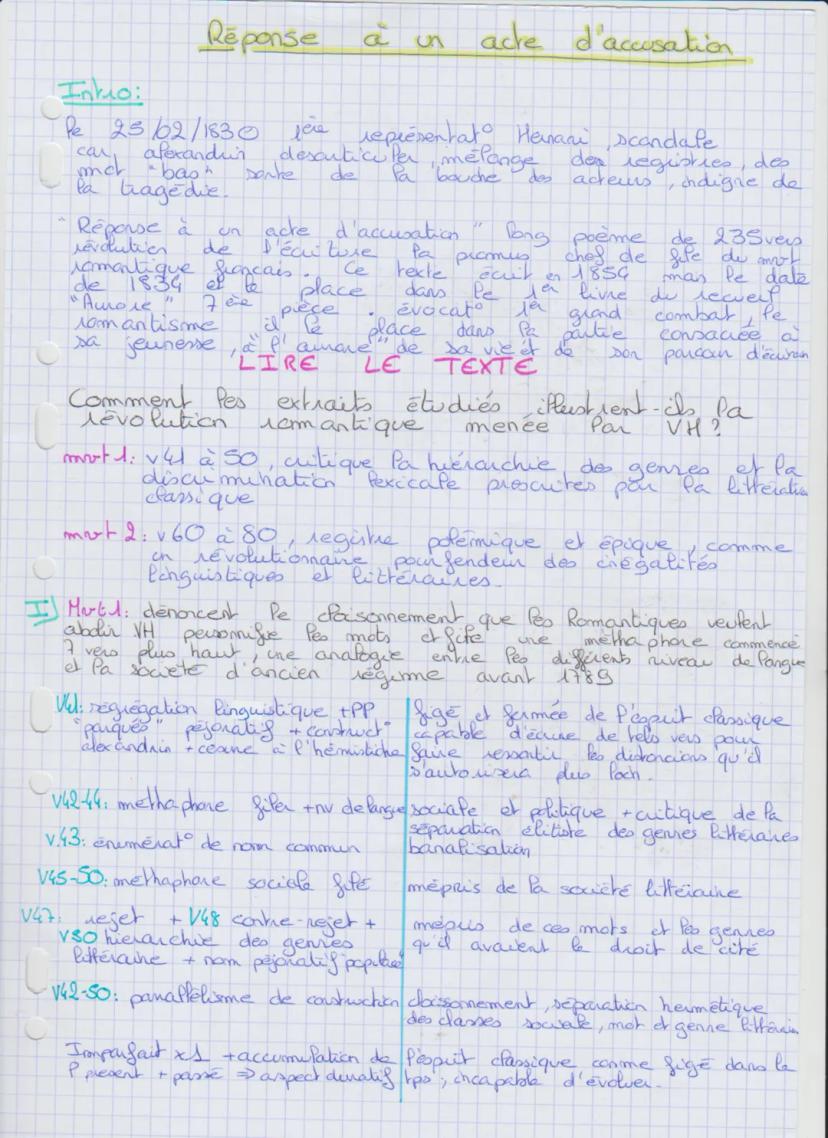 Réponse à un acte d'accusation
Intro:
le 25/02/1830 1ère représentat° Hernani, scandale
car alexandrin desarticuler, mélange des registres, des
mot "bas" sorte de la bouche des acteurs, indigne de
la tragédie.
"Réponse à un acte d'accusation" long poème de 235 vers
révolution de l'écriture la promus chef de file du mvt
romantique français. Ce texte écrit en 1854 mais le date
de 1834 et le place dans le 1er livre du recueil
"Aurore" 7ème pièce. évocat° 1er grand combat, le
romantisme il le place dans la partie consacrée à
sa jeunesse, à "l'aurore" de sa vie et de son parcour d'écrivain
LIRE LE TEXTE
Comment les extraits étudiés, illustrent-ils la
révolution romantique menée par VH?
mvt 1: v41 à 50, critique la hiérarchie des genres et la
discrimination lexicale prescrites par la littération
classique
mvt 2: v60 à 80, registre polémique et épique, comme
un révolutionnaire pourfendeur des inégalités
linguistiques et littéraires.
I) Mvt 1: dénoncent le cloisonnement que les Romantiques veulent
abolir VH personnifie les mots et file une méthaphore commencé
7 vers plus haut, une analogie entre les différents niveau de langue
et la société d'ancien régime avant 1789
V41: ségrégation linguistique + PP
"parqués" péjoratif + construct°
alexandrin + césure à l'hémistiche
figé et fermée de l'esprit classique
capable d'écrire de tels vers pour
faire ressortir les distorsions qu'il
s'autorisera plus loch.
V42-44: méthaphore filer + nv de langue
sociale et politique + critique de la
séparation élitiste des genres littéraires
v.43: énumérat° de nom commun
banalisation
V45-50: méthaphore sociale filé
mépris de la société littéraire
V47: rejet + V48 contre-rejet +
V50 hierarchie des genres
littéraire + nom péjoratif populace
mépris de ces mots et les genres
qu'il avaient le droit de cité
V42-50: parallélisme de construction
cloisonnement, séparation hermétique
des classes sociale, mot et genre littérair
Imparfait x1 + accumulation de
P présent + passé ⇒ aspect duratif
l'esprit classique comme figé dans le
tps, incapable d'évoluer.